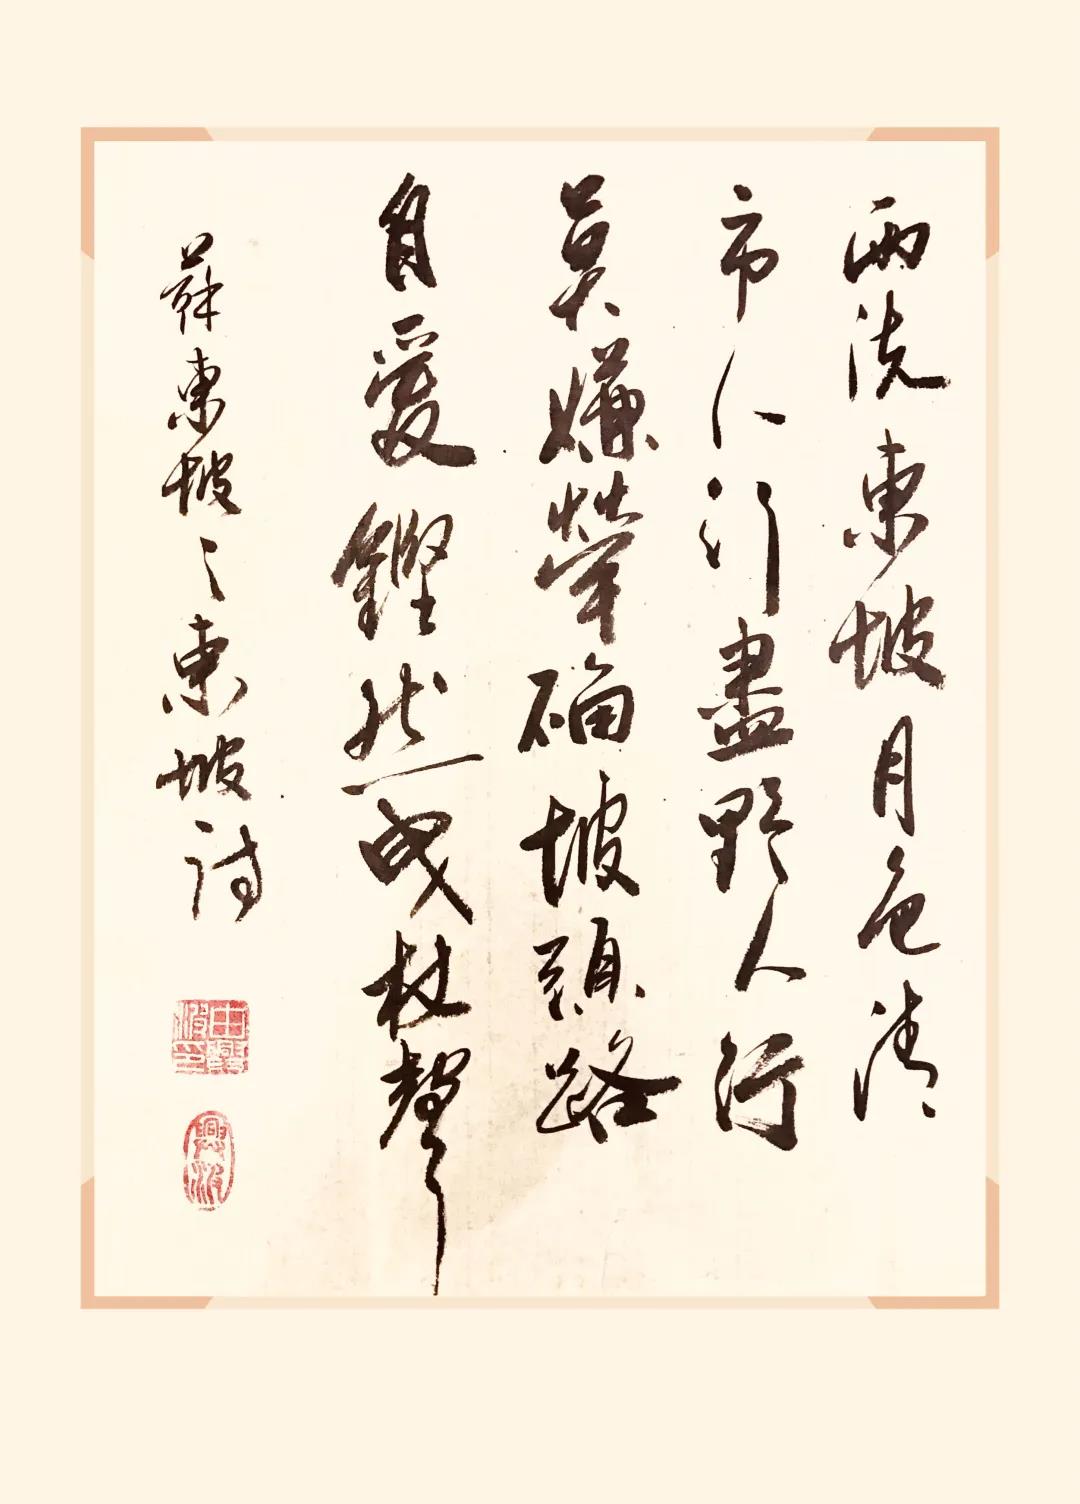 雨洗東坡月色清
市人行盡野人行
莫嫌犖确坡頭路
自愛鏗然曳杖聲
蘇東坡之東坡詩
田興波印
興波